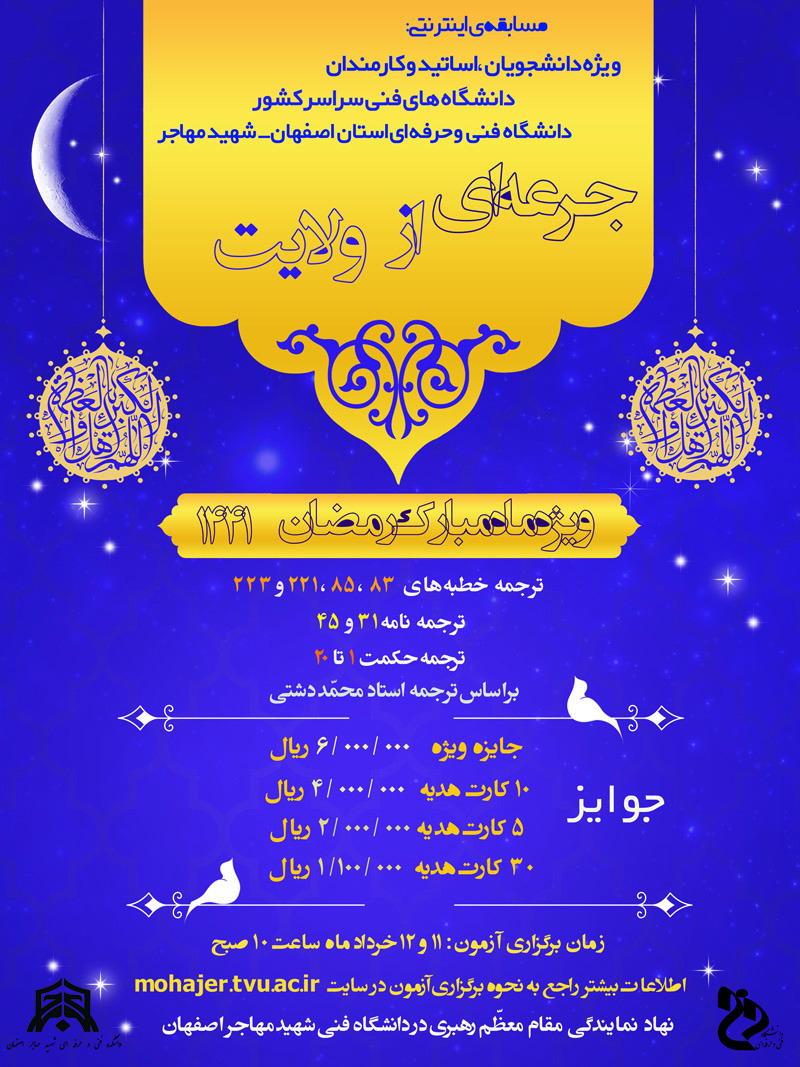 مسابقه‌ی اینترنتی:
ویژه دانشجویان ،اساتید و کارمندان
دانشگاه های فنی سراسر کشور
دانشگاه فنی و حرفه ای استان اصفهان_ شهید مهاجر
جرعه‌ای از ولایت
اللهم اهل الکبریاء و العظمة
اللهم اهل الکبریاء و العظمة
ویژه ماه مبارک رمضان ۱۴۴۱
ترجمه خطبه های ۸۳ ،۸۵ ،۲۲۱ و ۲۲۳
ترجمه نامه ۳۱ و ۴۵
ترجمه حکمت ۱ تا ۲۰
براساس ترجمه استاد محمّد دشتی
جوایز
جایزه ویژه ۶/۰۰۰/۰۰۰ ریال
۱۰ کارت هدیه ۴/۰۰۰/۰۰۰ ریال
۵ کارت هدیه ۲/۰۰۰/۰۰۰ ریال
۳۰ کارت هدیه ۱/۱۰۰/۰۰۰ ریال
زمان برگزاری آزمون : ۱۱ و ۱۲ خرداد ماه ساعت ۱۰ صبح
اطلاعات بیشتر راجع به نحوه برگزاری آزمون در سایت mohajer.tvu.ac.ir
نهاد نمایندگی مقام معظّم رهبری در دانشگاه فنی شهید مهاجر اصفهان
دانشگاه فنی و حرفه ای
دانشکده فنی و حرفه ای شهید مهاجر اصفهان